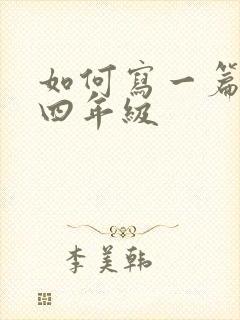 如何寫一篇
四年級
李美韩